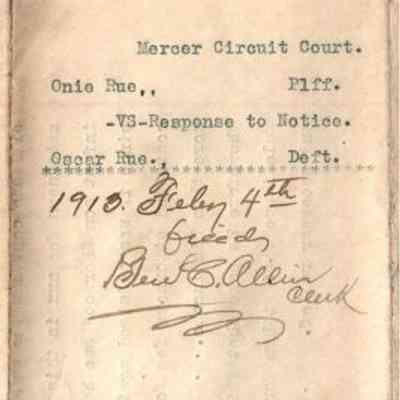 Mercer Circuit Court.
Onie Rue,, Plff.
-VS-Response to Notice.
Oscar Rue., Deft.
1913. Feby 4th
Ben C. Allin
Clerk